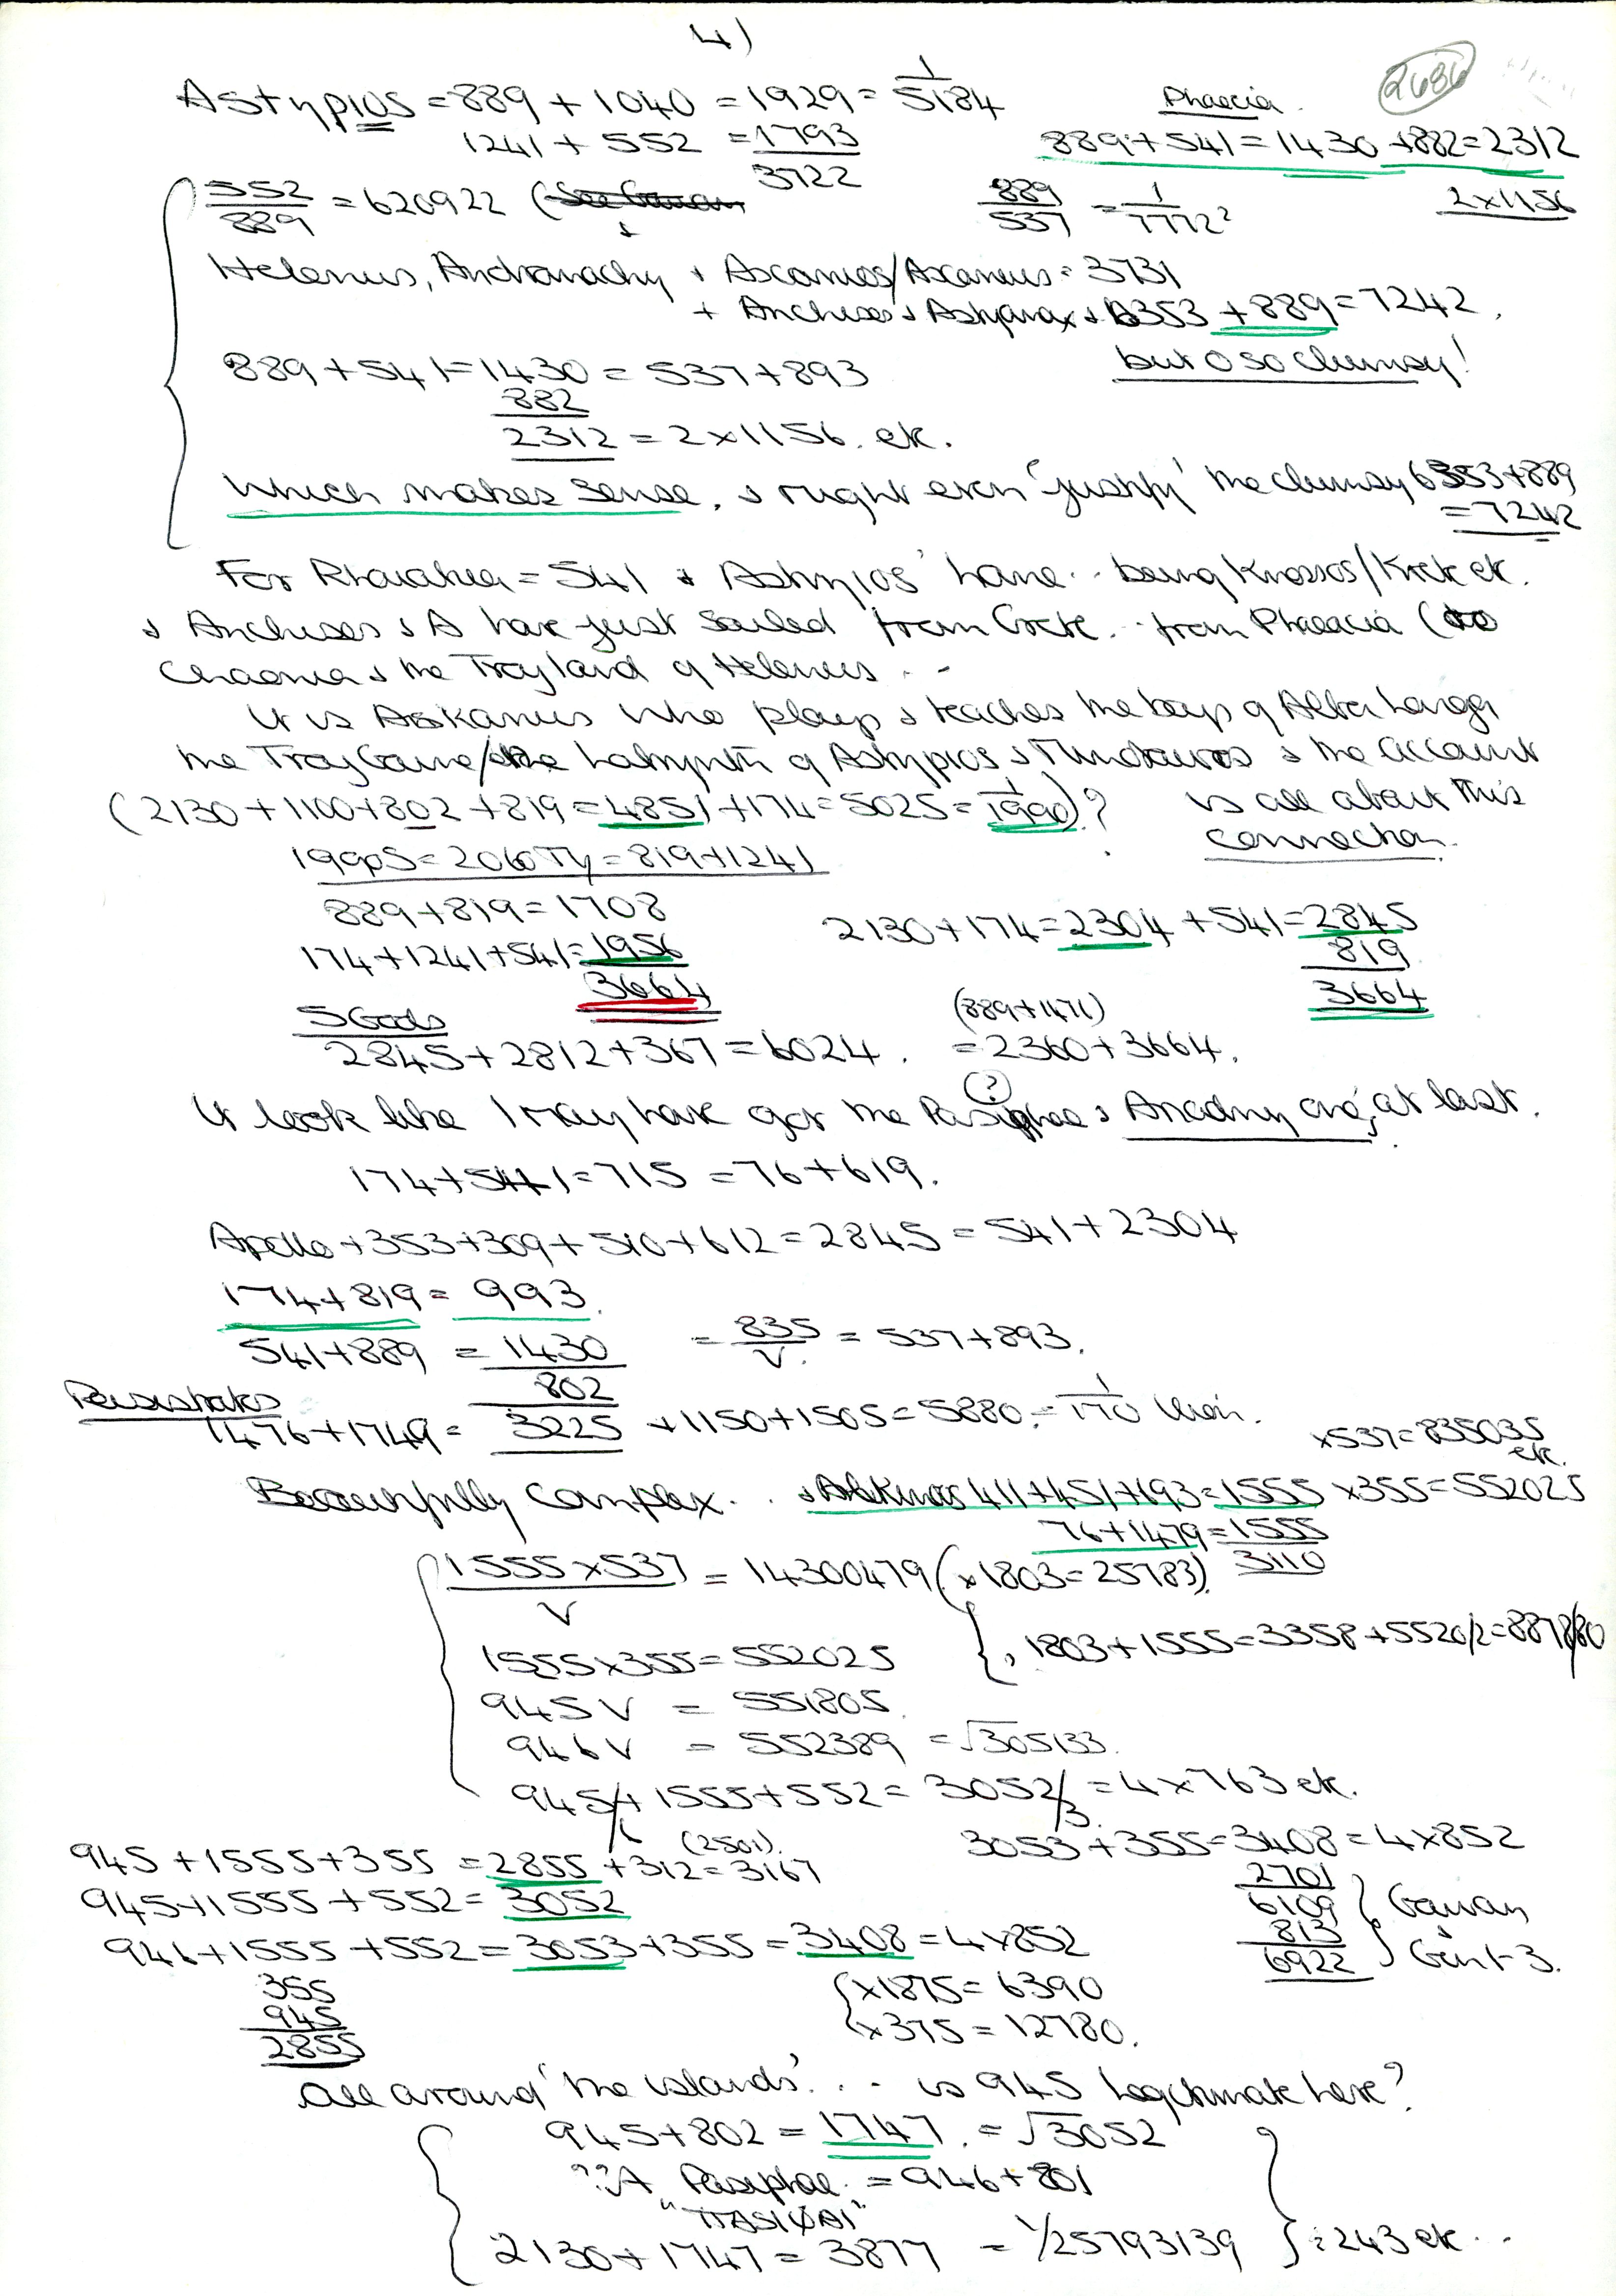 4)
2686
Astypios = 889 + 1040 = 1929 = 1/5184
Phaecia.
1241 + 552 = 1793
889 + 541 = 1430 + 882 = 2312
3722
2 x 1156
552/889 = 620922 (
889/537 = 1/7772?
Helenus, Andromachy + Ascanios/Ascaneus = 3731
+ Anchises & Astyanax & 6353 + 889 = 7242.
but O so clumsy!
889 + 541 = 1430 = 537 + 893
882
2312 = 2 x 1156. etc.
Which makes sense, & might even 'justify' the clumsy 6353 + 889
= 7242
For Phaiakia = 541 & Astypios' home.. being Knossos/Krete etc.
& Anchises & A have just sailed from Crete.. from Phaeacia (to
Chaonia & the Troy land of Helenus...
It is Askanius who plays & teaches the boys of Alba Longa
the Troy Game/the Labyrinth of & the account
(2130 + 1100 + 802 + 819 = 4851 + 174 = 5025 = 1/1990)?
is all about this
connection.
1990S = 2060Ty = 819 + 1241
889 + 819 = 1708
174 + 1241 + 541 = 1956
3664
2130 + 174 = 2304 + 541 = 2845
819
3664
5 Gods
2845 + 2812 + 367 = 6024.
(889 + 1471)
= 2360 + 3664.
It look like I may have got the Pasiphae (?) & one, at last.
174 + 541 = 715 = 76 + 619.
Apollo + 353 + 309 + 510 + 612 = 2845 = 541 + 2304
174 + 819 = 993.
541 + 889 = 1430 = 835/V = 537 + 893.
802
Peisistratos
1476 + 1749 = 3225 + 1150 + 1505 = 5880 = 1/170
x 537 = 835035
etc.
Beautifully complex.. & Alkinoos 411 + 451 + 693 = 1555 x 355 = 552025
76 + 1479 = 1555
3110
1555 x 537/V = 14300479 (x 1803 = 25783).
1555 x 355 = 552025
, 1803 + 1555 = 3358 + 5520/2 = 8878/80
945 V = 551805.
946 V = 552389 = √305133.
945/6 + 1555 + 552 = 3052/3 = 4 x 763 etc.
945 + 1555 + 355 = 2855 + 312 = 3167
(2501).
3053 + 355 = 3408 = 4 x 852
2701
945 + 1555 + 552 = 3052
6109
Gawan
813
6922
Gent 3.
946 + 1555 + 552 = 3053 + 355 = 3408 = 4 x 852
355
945
2855
x 1875 = 6390
x 375 = 12780.
All around 'the islands'... is 945 legitimate here?
945 + 802 = 1747. = √3052
??A Pasiphae. = 946 + 801
"ΠΑSΙΦΑΙ"
2130 + 1747 = 3877 = 1/25793139 : 243 etc...